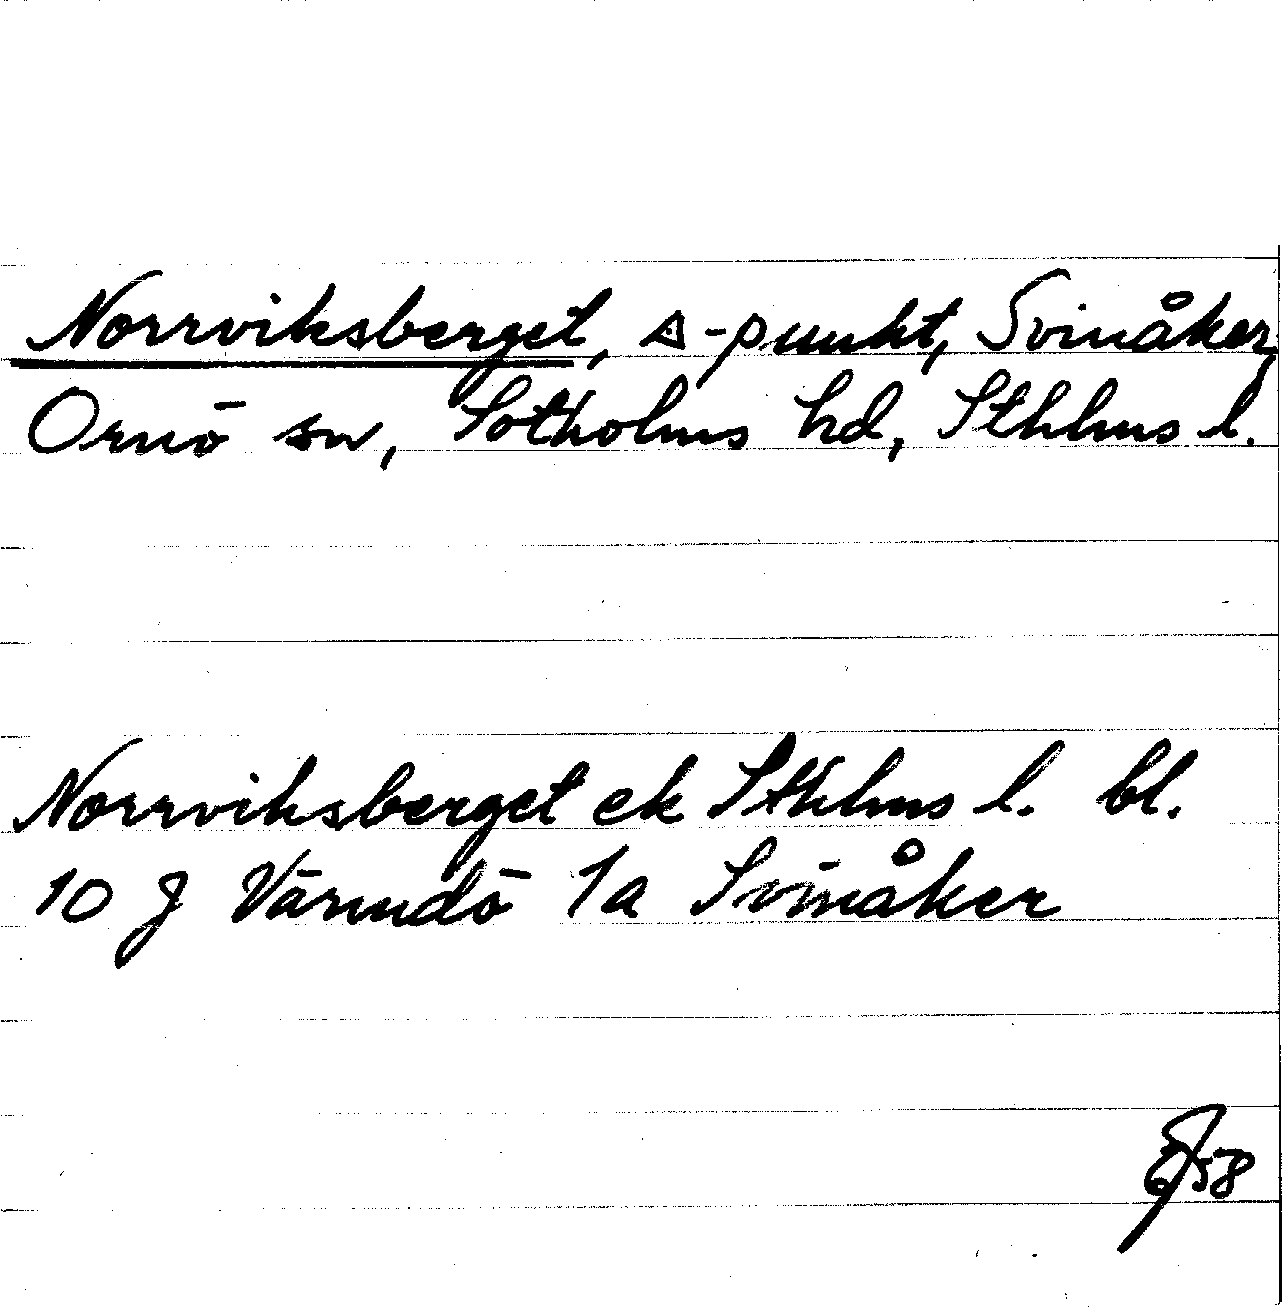 Norrviksberget, △-punkt, Svinåker,
Ornö sn, Sotholms hd, Sthlms l.
Norrviksberget ek Sthlms l. bl.
10 J Värmdö 1a Svinåker
58